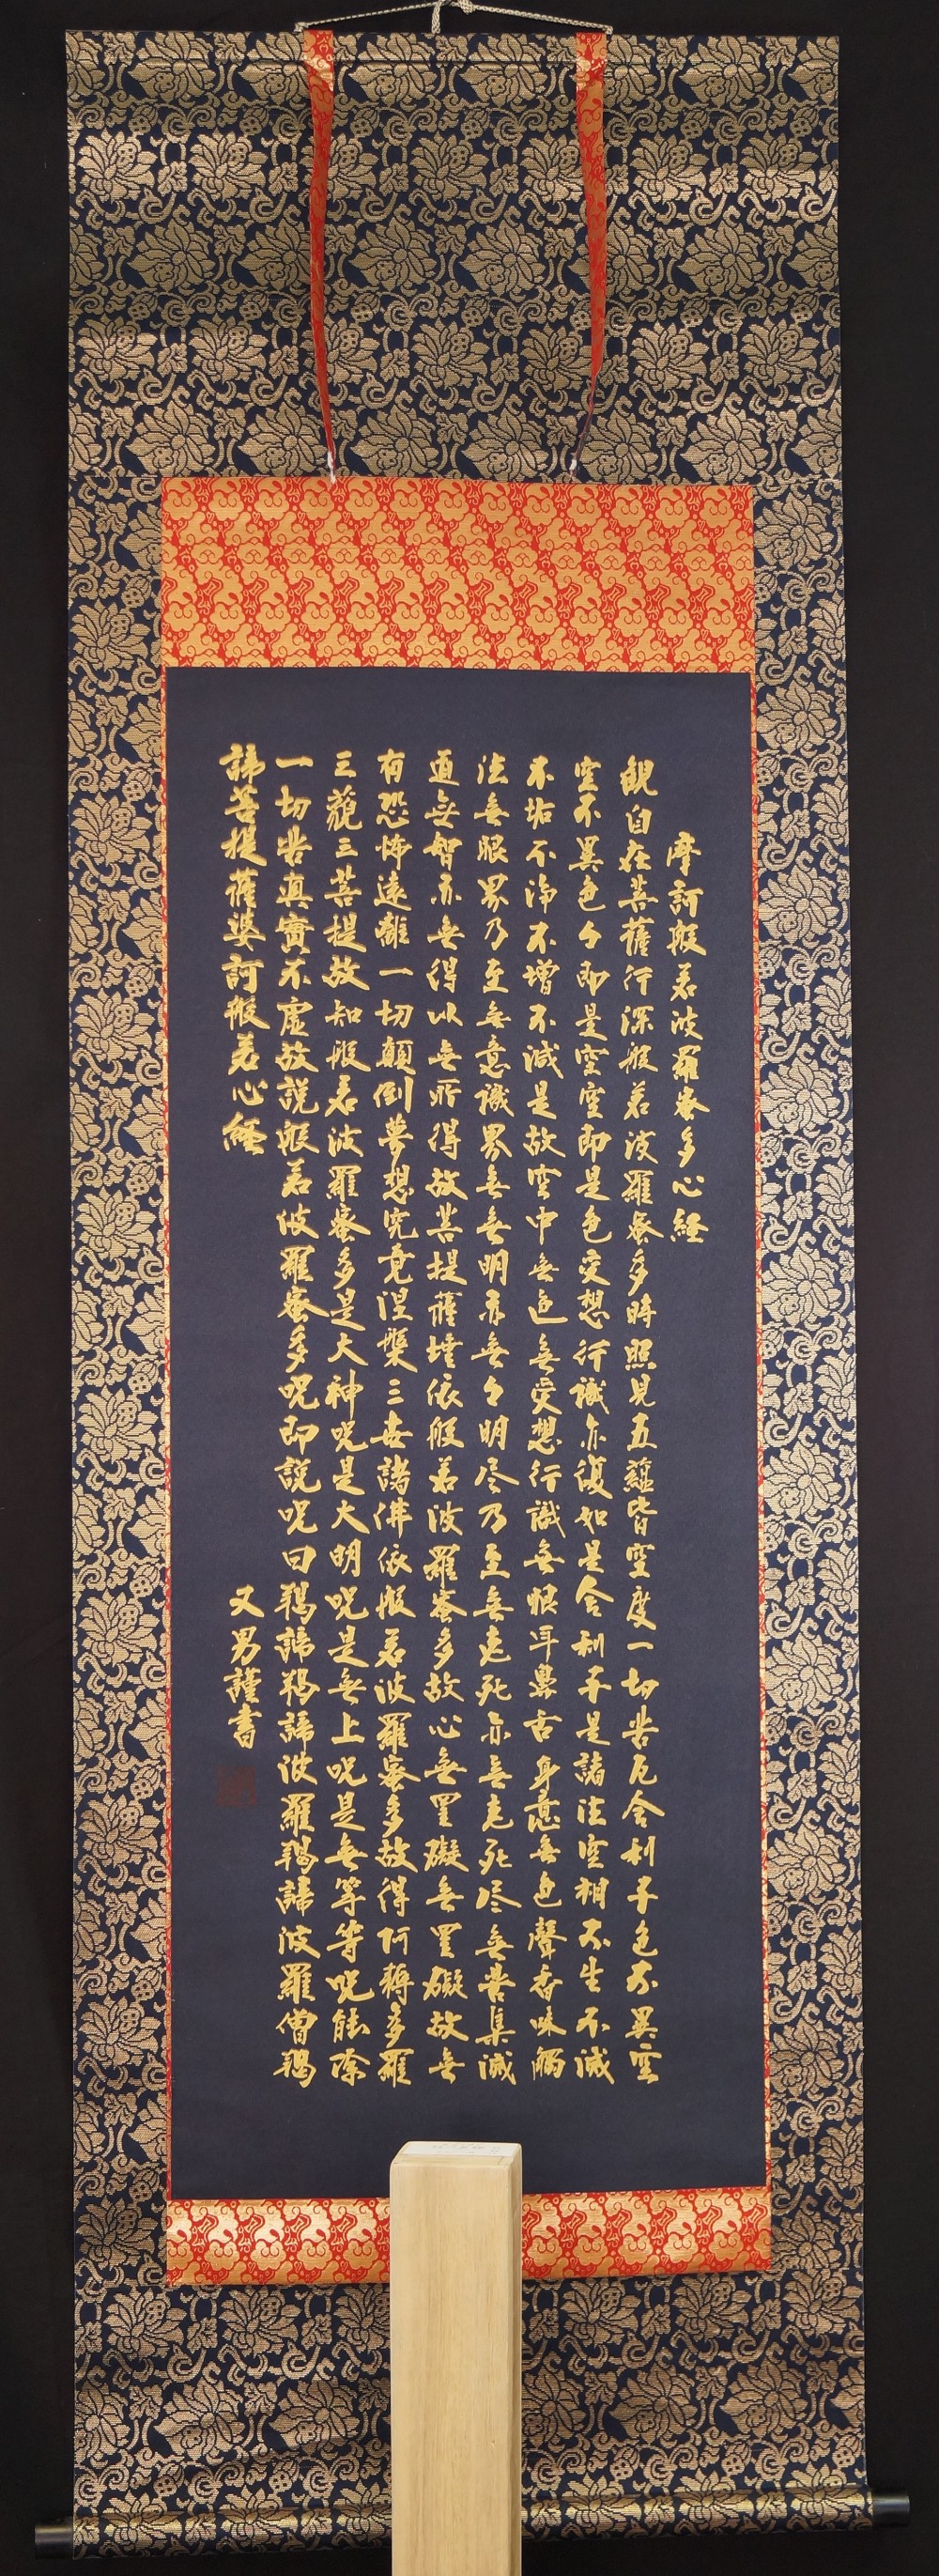 摩訶般若波羅蜜多心経
観自在菩薩行深般若波羅蜜多時照見五蘊皆空度一切苦厄舎利子色不異空
空不異色々即是空空即是色受想行識亦復如是舎利子是諸法空相不生不滅
不垢不浄不増不減是故空中無色無受想行識無眼耳鼻舌身意無色聲香味觸
法無眼界乃至無意識界無無明亦無々明尽乃至無老死亦無老死尽無苦集滅
道無智亦無得以無所得故菩提薩埵依般若波羅蜜多故心無罣礙無罣礙故無
有恐怖遠離一切顛倒夢想究竟涅槃三世諸佛依般若波羅蜜多故得阿耨多羅
三藐三菩提故知般若波羅蜜多是大神呪是大明呪是無上呪是無等等呪能除
一切苦真實不虚故説般若波羅蜜多呪即説呪曰羯諦羯諦波羅羯諦波羅僧羯
諦菩提薩婆訶般若心經
又男謹書